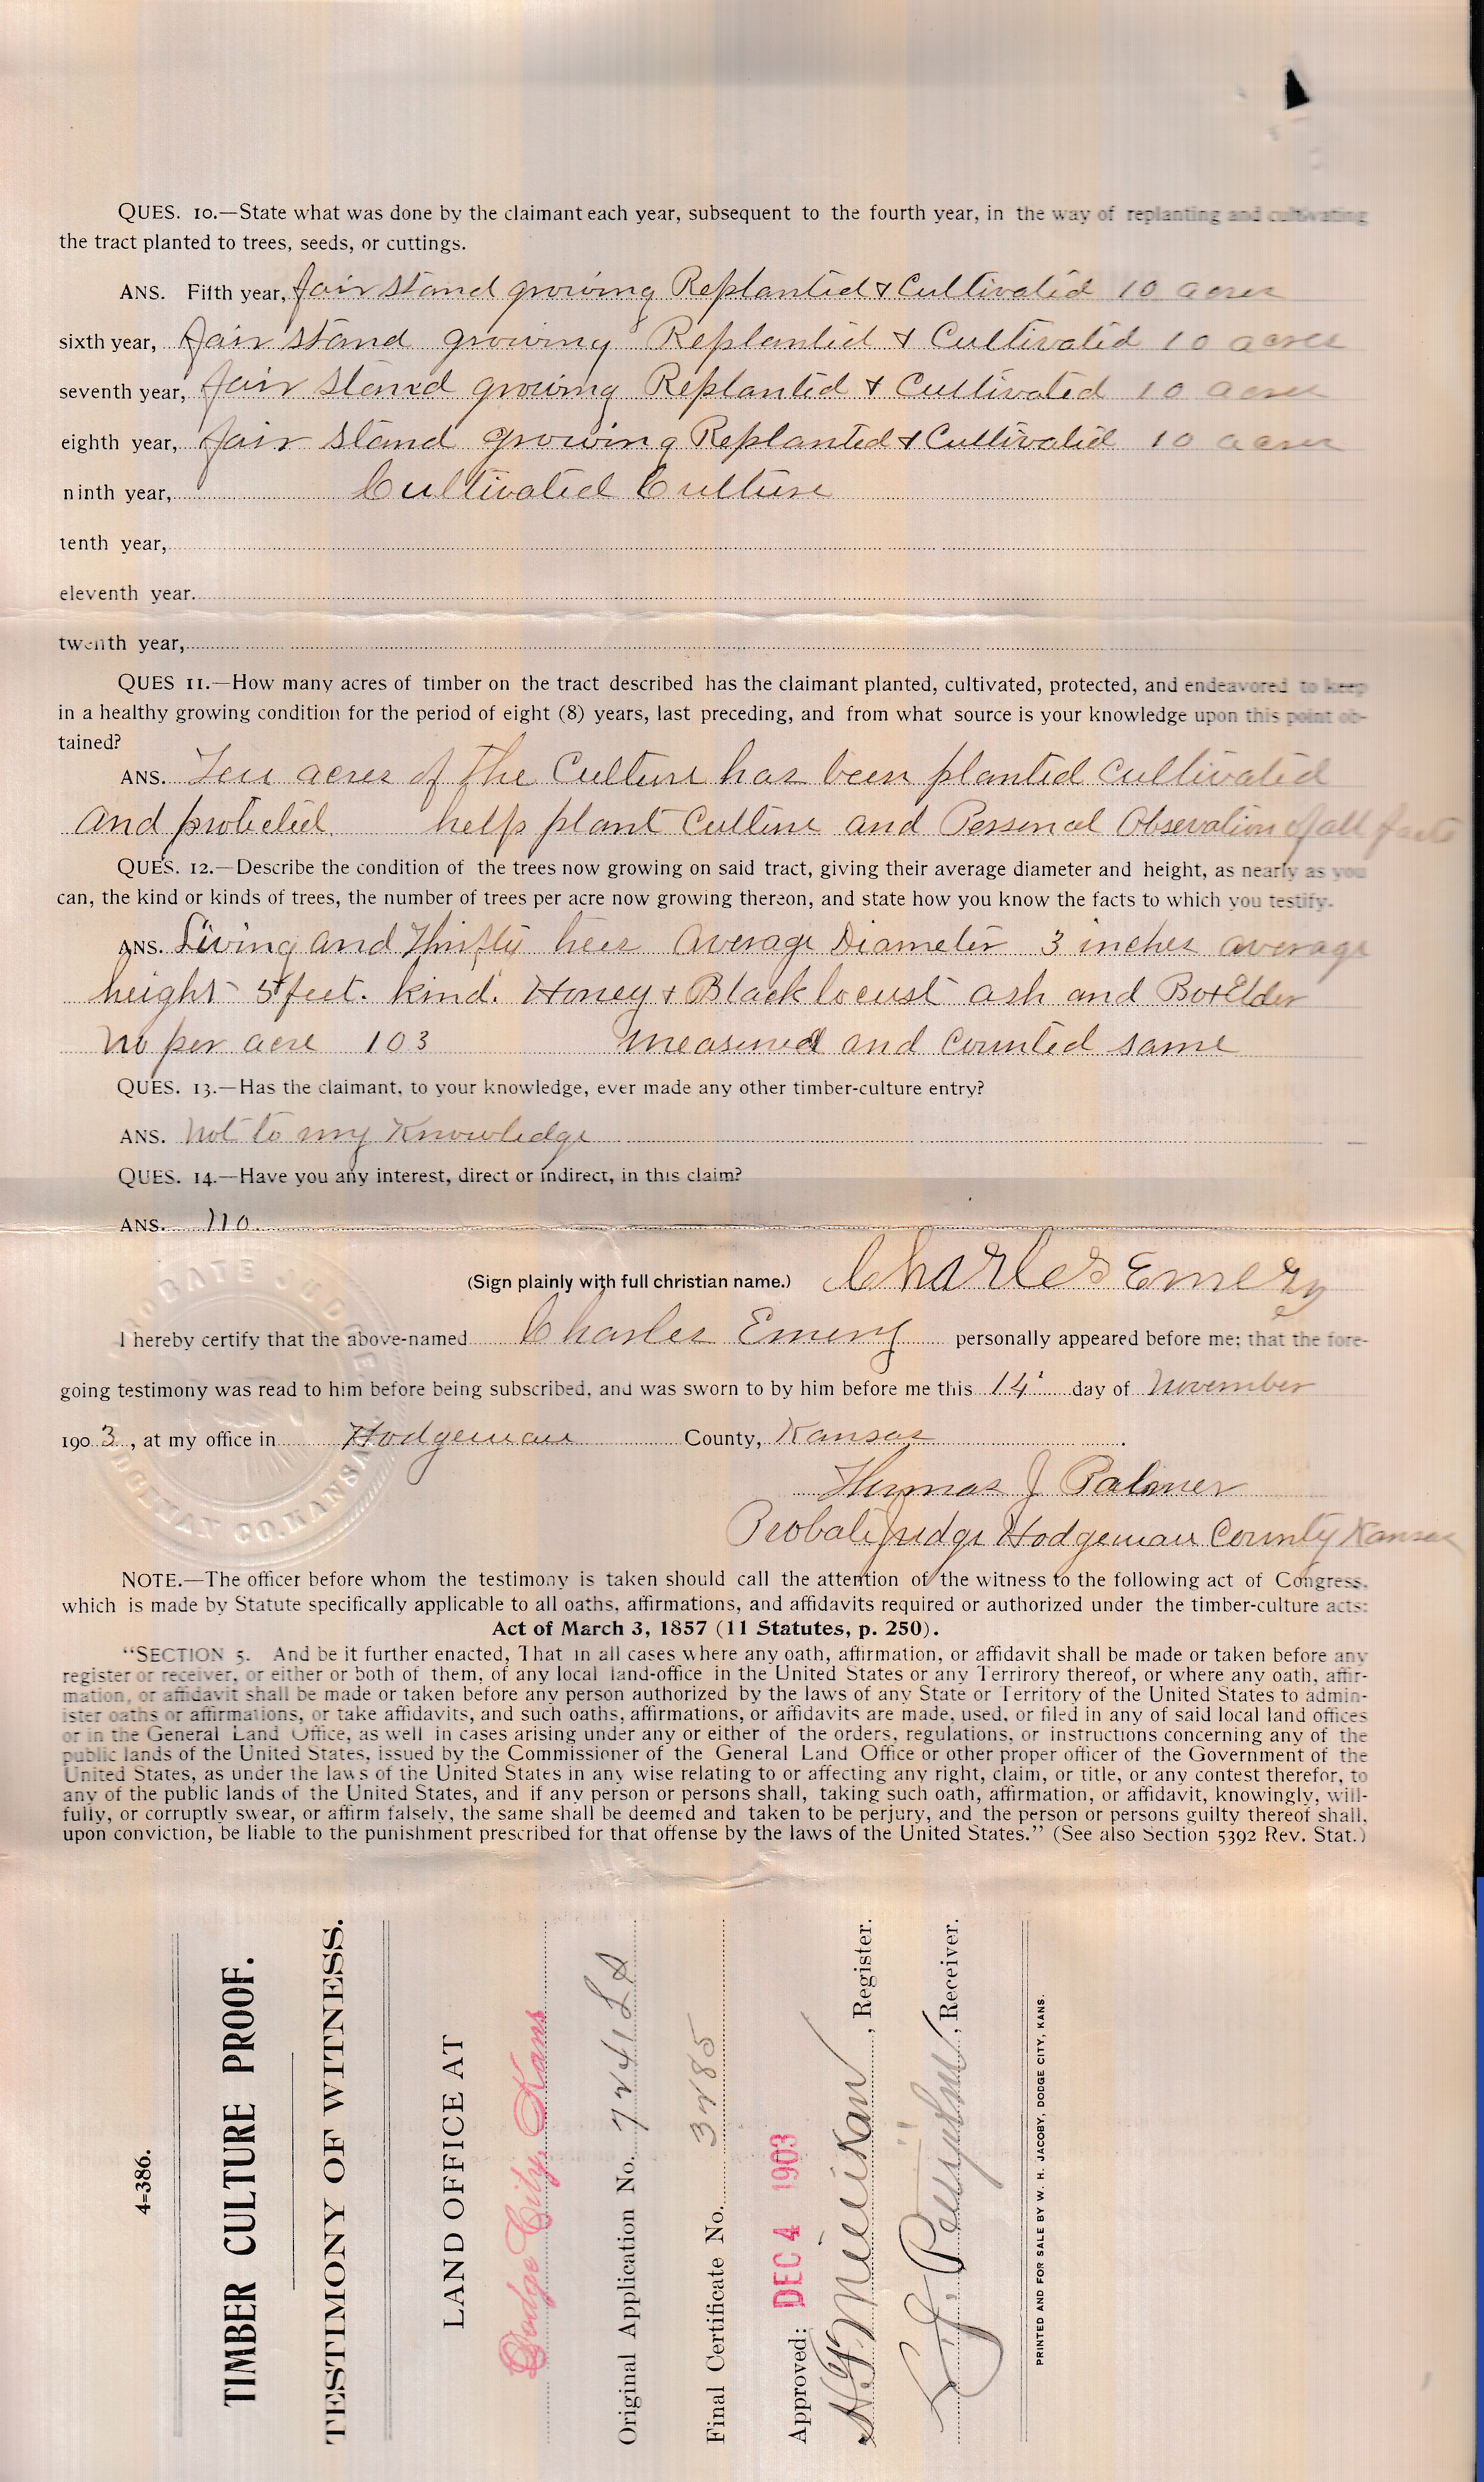 QUES. 10.—State what was done by the claimant each year, subsequent to the fourth year, in the way of replanting and cultivating
the tract planted to trees, seeds, or cuttings.
ANS. Fifth year, fair stand growing Replanted & Cultivated 10 acres
sixth year, fair stand growing Replanted & Cultivated 10 acres
seventh year, fair stand growing Replanted & Cultivated 10 acres
eighth year, fair stand growing Replanted & Cultivated 10 acres
ninth year, Cultivated Culture
tenth year,
eleventh year.
twenth year,
QUES 11.—How many acres of timber on the tract described has the claimant planted, cultivated, protected, and endeavored to keep
in a healthy growing condition for the period of eight (8) years, last preceding, and from what source is your knowledge upon this point ob-
tained?
ANS. Ten acres of the Culture has been planted cultivated
and protected help plant Culture and Personal Obsevation of all facts
QUES. 12.—Describe the condition of the trees now growing on said tract, giving their average diameter and height, as nearly as you
can, the kind or kinds of trees, the number of trees per acre now growing thereon, and state how you know the facts to which you testify.
ANS. Living and Thrifty trees average Diameter 3 inches average
height 5 feet. kind. Honey & Black locust ash and Box Elder
no per acre 103 measured and counted same
QUES. 13.—Has the claimant, to your knowledge, ever made any other timber-culture entry?
ANS. not to my Knowledge
QUES. 14.—Have you any interest, direct or indirect, in this claim?
ANS. no
(Sign plainly with full christian name.) Charles Emery
I hereby certify that the above-named Charles Emery personally appeared before me; that the fore-
going testimony was read to him before being subscribed, and was sworn to by him before me this 14 day of November
190 3, at my office in Hodgeman County, Kansas.
Thomas J Palmer
Probate Judge Hodgeman County Kansas
PROBATE JUDGE
HODGEMAN CO. KANSAS
NOTE.—The officer before whom the testimony is taken should call the attention of the witness to the following act of Congress,
which is made by Statute specifically applicable to all oaths, affirmations, and affidavits required or authorized under the timber-culture acts:
Act of March 3, 1857 (11 Statutes, p. 250).
"SECTION 5. And be it further enacted, That in all cases where any oath, affirmation, or affidavit shall be made or taken before any
register or receiver, or either or both of them, of any local land-office in the United States or any Terrirory thereof, or where any oath, affir-
mation, or affidavit shall be made or taken before any person authorized by the laws of any State or Territory of the United States to admin-
ister oaths or affirmations, or take affidavits, and such oaths, affirmations, or affidavits are made, used, or filed in any of said local land offices
or in the General Land Office, as well in cases arising under any or either of the orders, regulations, or instructions concerning any of the
public lands of the United States, issued by the Commissioner of the General Land Office or other proper officer of the Government of the
United States, as under the laws of the United States in any wise relating to or affecting any right, claim, or title, or any contest therefor, to
any of the public lands of the United States, and if any person or persons shall, taking such oath, affirmation, or affidavit, knowingly, will-
fully, or corruptly swear, or affirm falsely, the same shall be deemed and taken to be perjury, and the person or persons guilty thereof shall,
upon conviction, be liable to the punishment prescribed for that offense by the laws of the United States." (See also Section 5392 Rev. Stat.)
4-386.
TIMBER CULTURE PROOF.
TESTIMONY OF WITNESS.
LAND OFFICE AT
Dodge City, Kans
Original Application No. 7241
Final Certificate No. 3285
Approved: DEC 4 1903
H.F. Millikan, Register.
, Receiver.
PRINTED AND FOR SALE BY W. H. JACOBY, DODGE CITY, KANS.